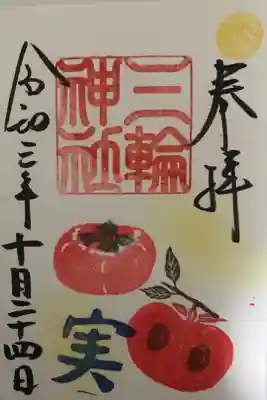 奉拝
三輪
神社
令和三年十月二十四日
実